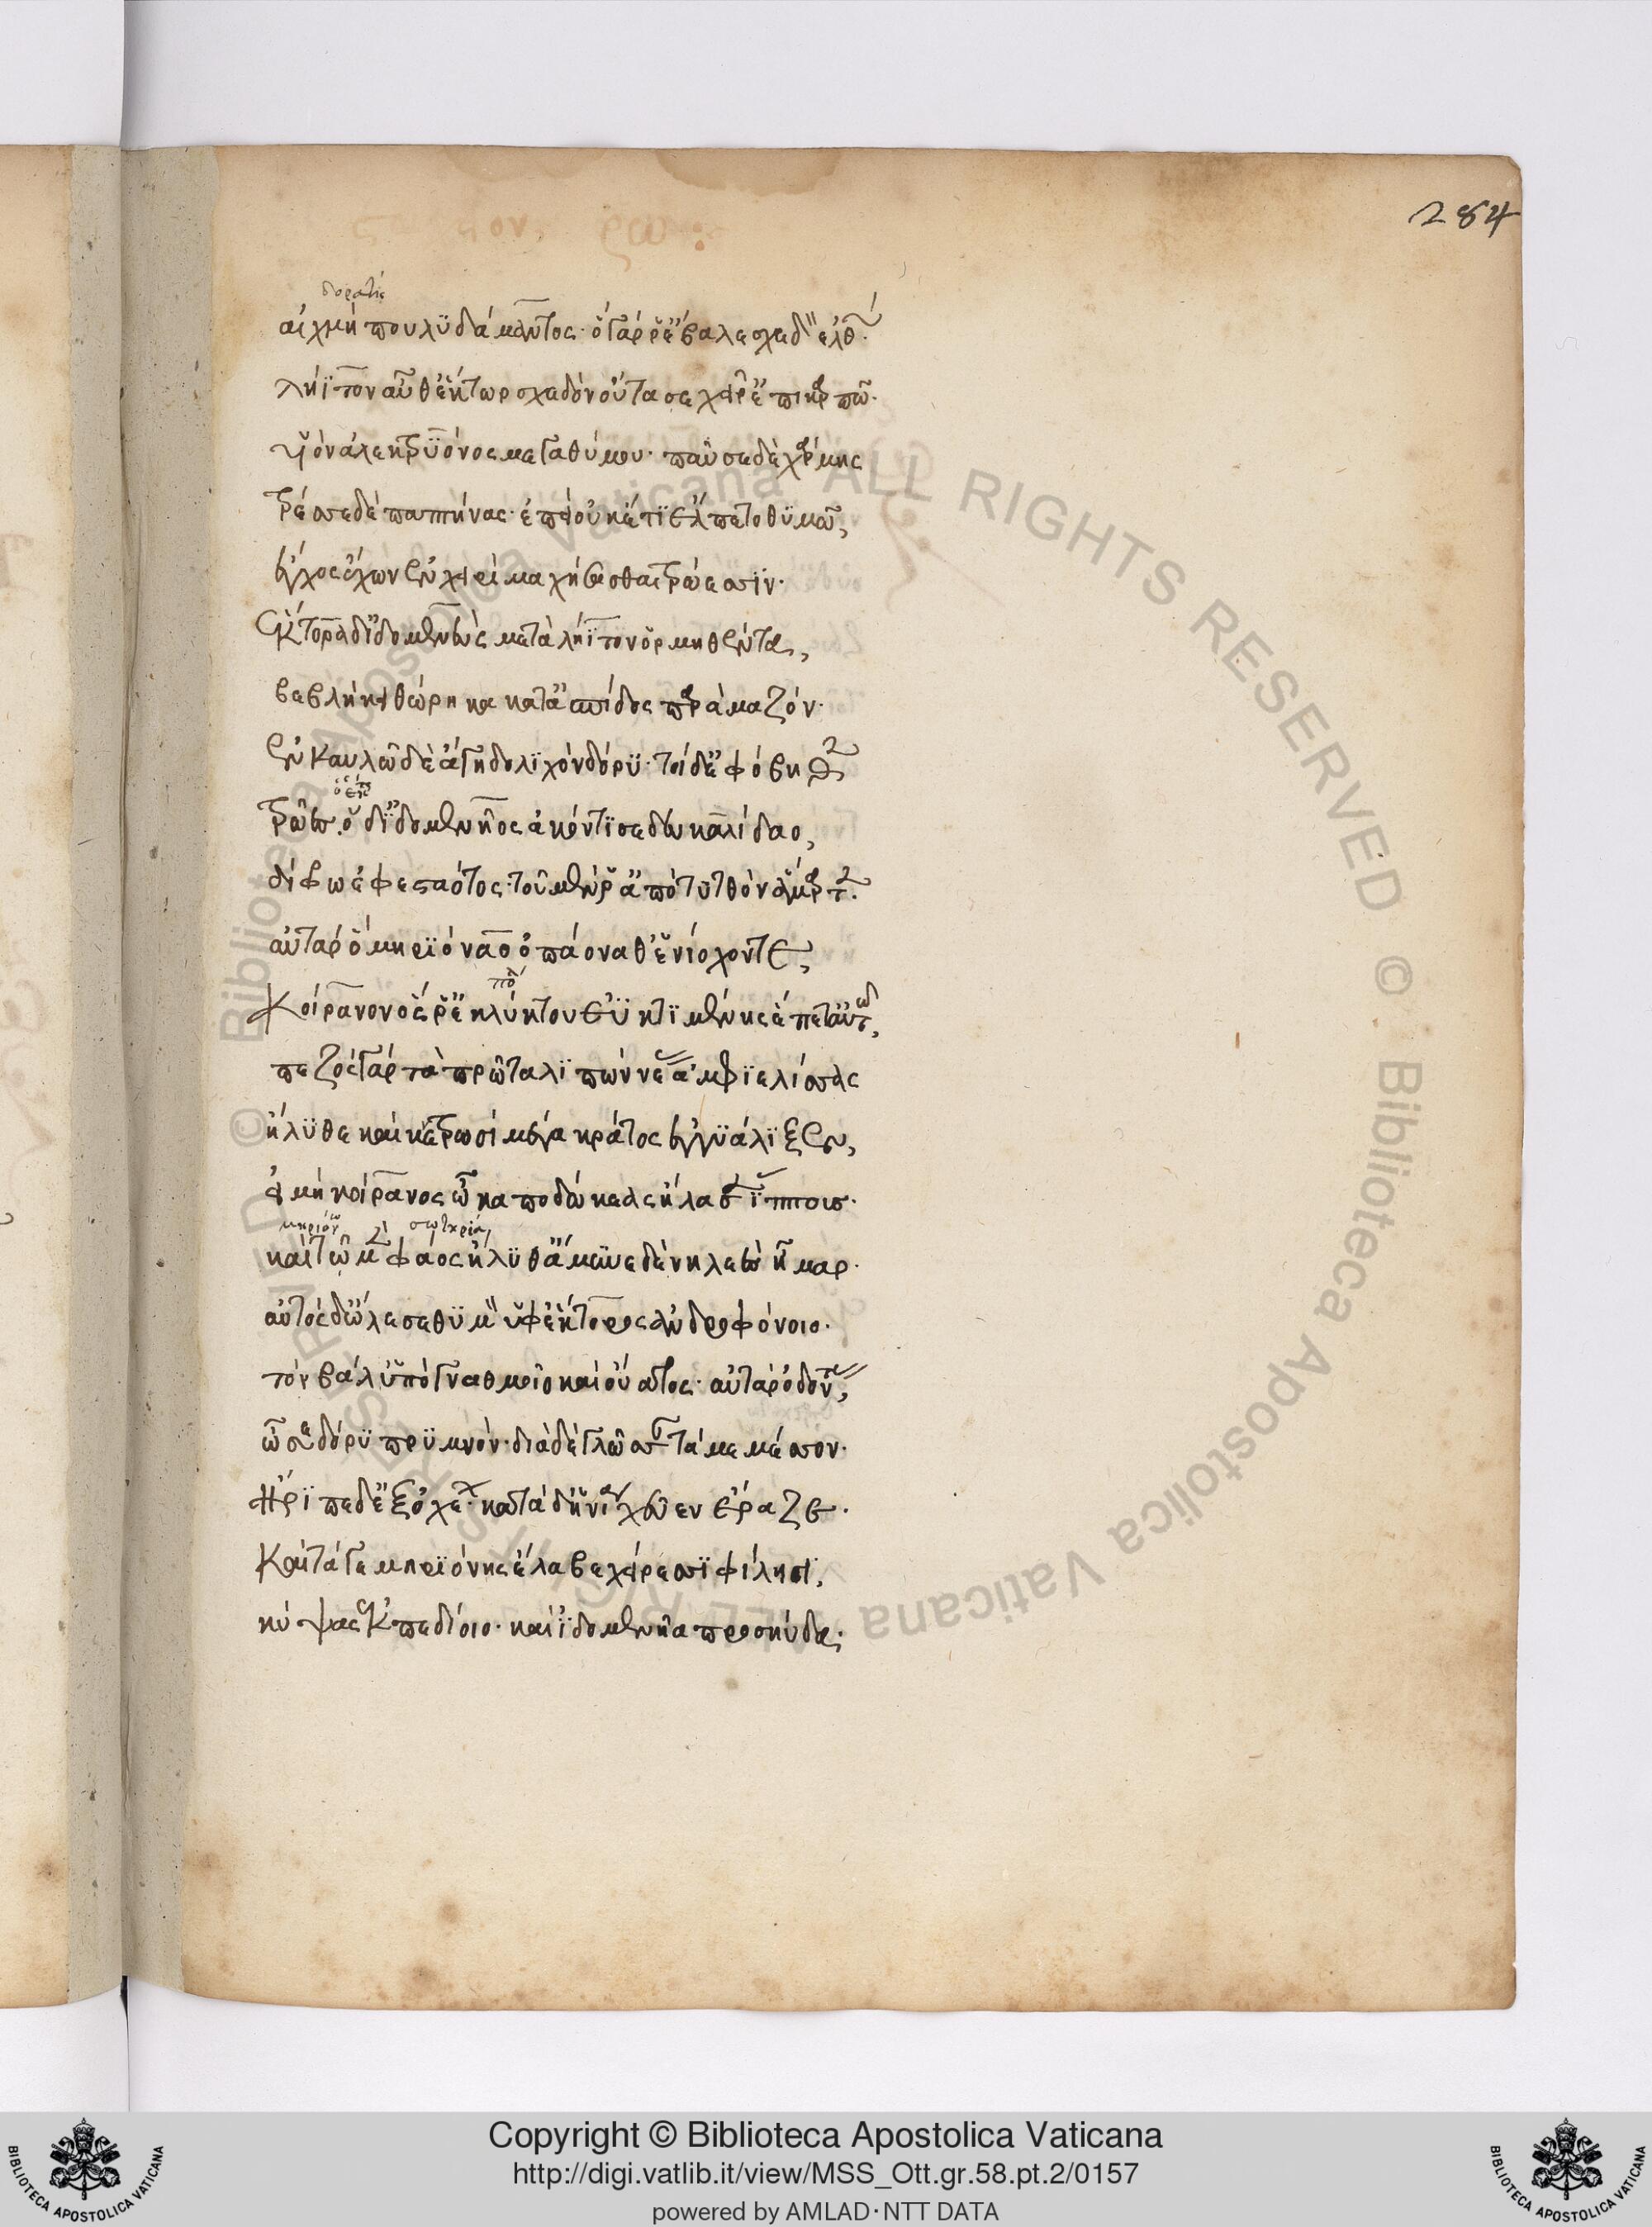 284
αἰχμὴ πουλϋδάμαντος· ὁ γάρ ῥ' ἔβαλε σχεδὸν ἐλθών·
λήϊτον αὖθ' ἕκτωρ σχεδὸν οὔτασε χεῖρ' ἐπὶ καρπῶ·
υἱὸν ἀλεκτρϋόνος μεγαθύμου· παῦσε δὲ χάρμης
τρέσσε δὲ παπτήνας· ἐπεὶ οὐκέτϊ ἔλπετο θϋμῶ,
ἔγχος ἔχων ἐν χειρὶ μαχήσεσθαι τρώεσσϊν·
ἕκτορα δ' ἰδομενεὺς μετὰ λήϊτον ὁρμηθέντα,
βεβλήκει θώρηκα κατὰ στῆθος παρὰ μαζόν·
ἐν καυλῶ δὲ ἐάγη δολϊχὸν δόρϋ· τοὶ δὲ φόβηθεν
τρῶες· ὁ δ' ϊδομενῆος ἀκόντϊσε δευκαλίδαο,
δίφρω ἐφεσταότος· τοῦ μέν ῥ' ἀπὸ τυτθὸν ἅμαρτεν·
αὐτὰρ ὁ μηρϊόναο ὀπάονα θ' ἡνίοχόν τε,
κοίρανον ὅς ῥ' ἐκ λύκτου ἐϋκτϊμένης ἕπετ' αὐτῶ,
πεζὸς γὰρ τὰ πρῶτα λϊπὼν νέας ἀμφϊελίσσας
ἤλϋθε καί κε τρωσὶ μέγα κράτος ἐγγϋάλϊξεν,
εἰ μὴ κοίρανος ὦκα ποδώκεας ἤλασεν ἵππους·
καὶ τῶ μὲν φάος ἦλϋθ' ἄμυνε δὲ νηλεὲς ἦμαρ·
αὐτὸς δ' ὤλεσε θϋμὸν ὑφ' ἕκτορος ἀνδροφόνοιο·
τὸν βάλ' ὑπὸ γναθμοῖο καὶ οὔατος· αὐτὰρ ὀδόντας,
ὦσε δόρϋ πρϋμνόν· διὰ δὲ γλῶσσαν τάμε μέσσον·
ἤρϊπε δ' ἐξ ὀχέων· κατὰ δ' ἡνία χεῦεν ἔραζε·
καὶ τά γε μηρϊόνης ἔλαβε χείρεσσϊ φίλησϊ,
κύψας ἐκ πεδίοιο· καὶ ϊδομενῆα προσηύδα·
Copyright © Biblioteca Apostolica Vaticana
http://digi.vatlib.it/view/MSS_Ott.gr.58.pt.2/0157
powered by AMLAD·NTT DATA